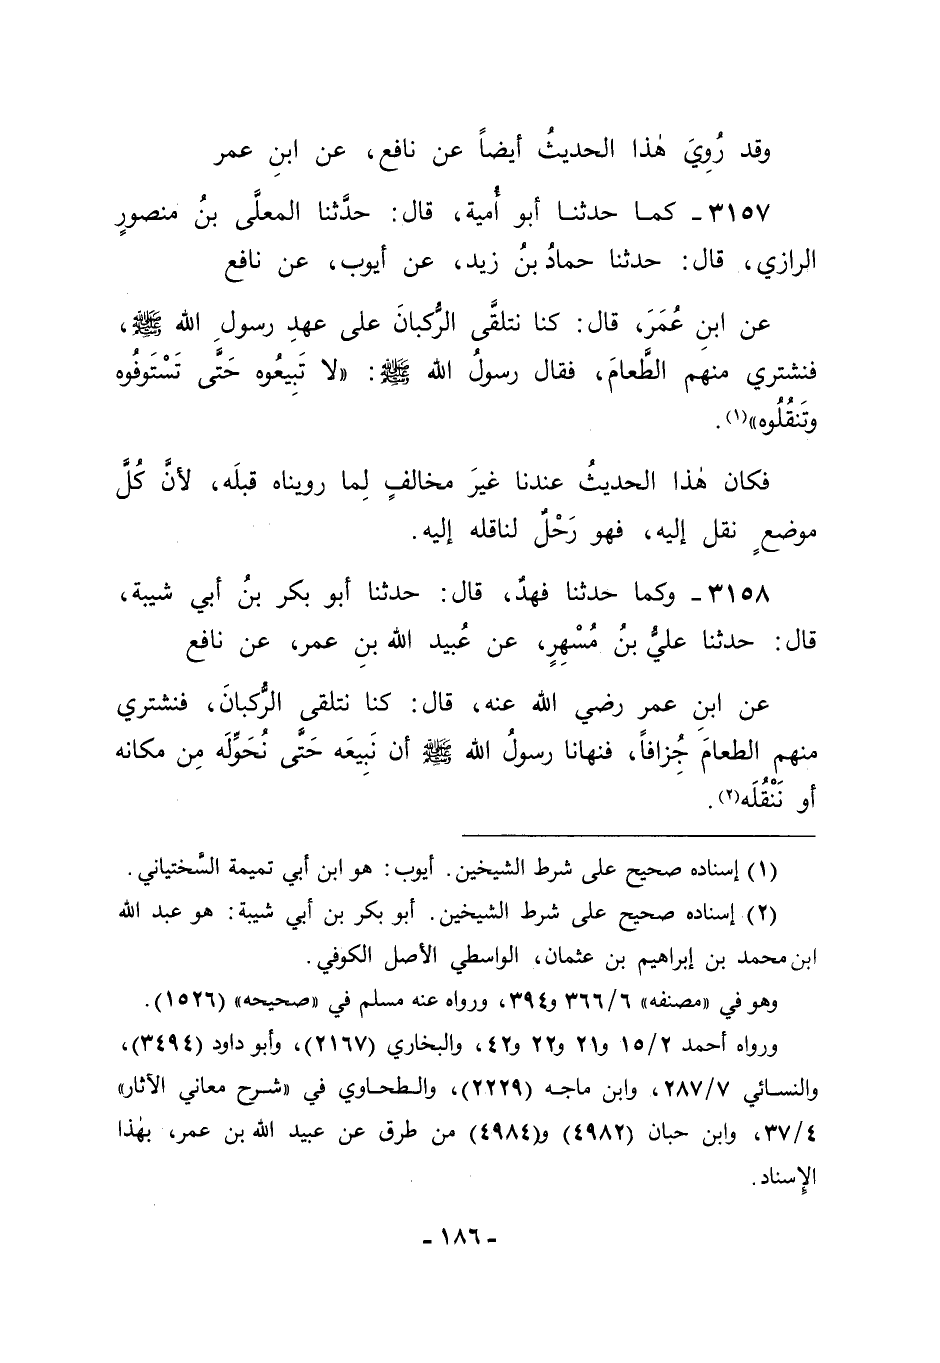 وقد رُوِيَ هٰذا الحديثُ أيضاً عن نافع، عن ابنِ عمر
٣١٥٧ ـ كما حدثنا أبو أُمية، قال: حدَّثنا المعلَّى بنُ منصورٍ
الرازي، قال: حدثنا حمادُ بنُ زيد، عن أيوب، عن نافع
عن ابنِ عُمَرَ، قال: كنا نتلقَّى الرُّكبانَ على عهدِ رسولِ الله ﷺ،
فنشتري منهم الطَّعامَ، فقال رسولُ الله ﷺ: «لا تَبِيعُوه حَتَّى تَسْتَوفُوه
وتَنقُلُوه»(١).
فكان هٰذا الحديثُ عندنا غيرَ مخالفٍ لِما رويناه قبلَه، لأنَّ كُلَّ
موضعٍ نقل إليه، فهو رَحْلٌ لناقله إليه.
٣١٥٨ ـ وكما حدثنا فهدٌ، قال: حدثنا أبو بكر بنُ أبي شيبة،
قال: حدثنا عليُّ بنُ مُسْهِرٍ، عن عُبيد الله بنِ عمر، عن نافع
عن ابنِ عمر رضي الله عنه، قال: كنا نتلقى الرُّكبانَ، فنشتري
منهم الطعامَ جُزِافاً، فنهانا رسولُ الله ﷺ أن نَبِيعَه حَتَّى نُحَوِّلَه مِن مكانه
أو نَنْقُلَه(٢).
(١) إسناده صحيح على شرط الشيخين. أيوب: هو ابن أبي تميمة السَّختياني.
(٢) إسناده صحيح على شرط الشيخين. أبو بكر بن أبي شيبة: هو عبد الله
ابن محمد بن إبراهيم بن عثمان، الواسطي الأصل الكوفي.
وهو في «مصنفه» ٣٦٦/٦ و٣٩٤، ورواه عنه مسلم في «صحيحه» (١٥٢٦).
ورواه أحمد ١٥/٢ و٢١ و٢٢ و٤٢، والبخاري (٢١٦٧)، وأبو داود (٣٤٩٤)،
والنسائي ٢٨٧/٧، وابن ماجه (٢٢٢٩)، والطحاوي في «شرح معاني الآثار»
٣٧/٤، وابن حبان (٤٩٨٢) و(٤٩٨٤) من طرق عن عبيد الله بن عمر، بهٰذا
الإسناد.
ـ ١٨٦ ـ